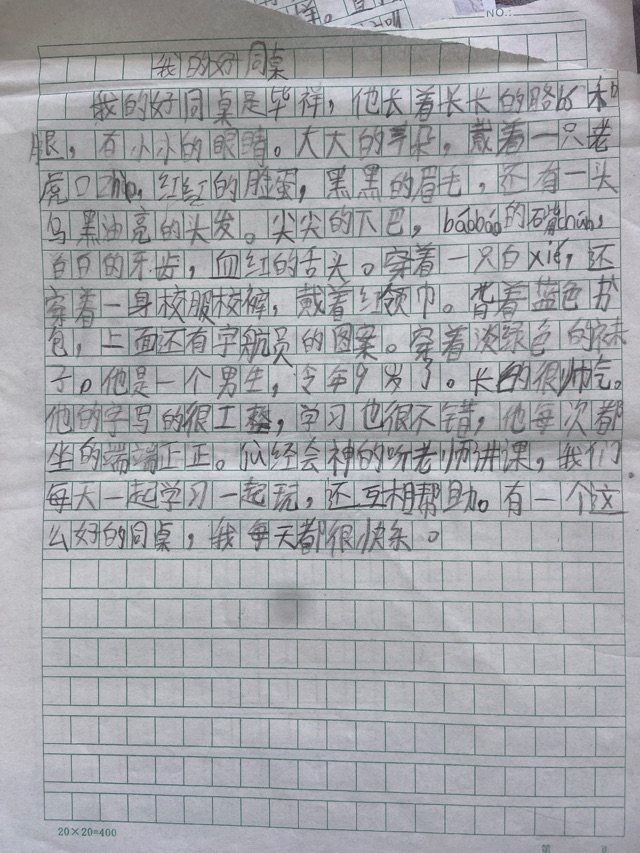 NO.:
我的好同桌
我的好同桌是毕祥，他长着长长的胳bó和
腿，有小小的眼睛。大大的耳朵，戴着一只老
虎口zhào，红红的脸蛋，黑黑的眉毛，还有一头
乌黑油亮的头发。尖尖的下巴，báobáo的嘴chún，
白白的牙齿，血红的舌头。穿着一只白xié，还
穿着一身校服校裤，戴着红领巾。背着蓝色书
包，上面还有宇航员的图案。穿着淡绿色的袜
子。他是一个男生，今年9岁了。长的很帅气。
他的字写的很工整，学习也很不错，他每次都
坐的端端正正。仙经会神的听老师讲课，我们
每天一起学习一起玩，还互相帮助。有一个这
么好的同桌，我每天都很快乐。
20×20=400
第